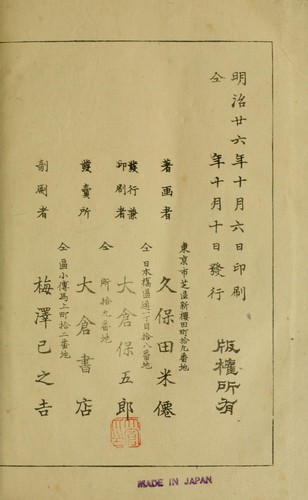 明治廿六年十月六日印刷
仝 年十月十日發行
版權所有
東京市芝區新櫻田町拾九番地
著畫者 久保田米僊
仝日本橋區通一丁目拾八番地
發行兼印刷者 大倉保五郎
仝 所拾九番地
發賣所 大倉書店
仝區小傳馬上町拾二番地
剞劂者 梅澤已之吉
MADE IN JAPAN